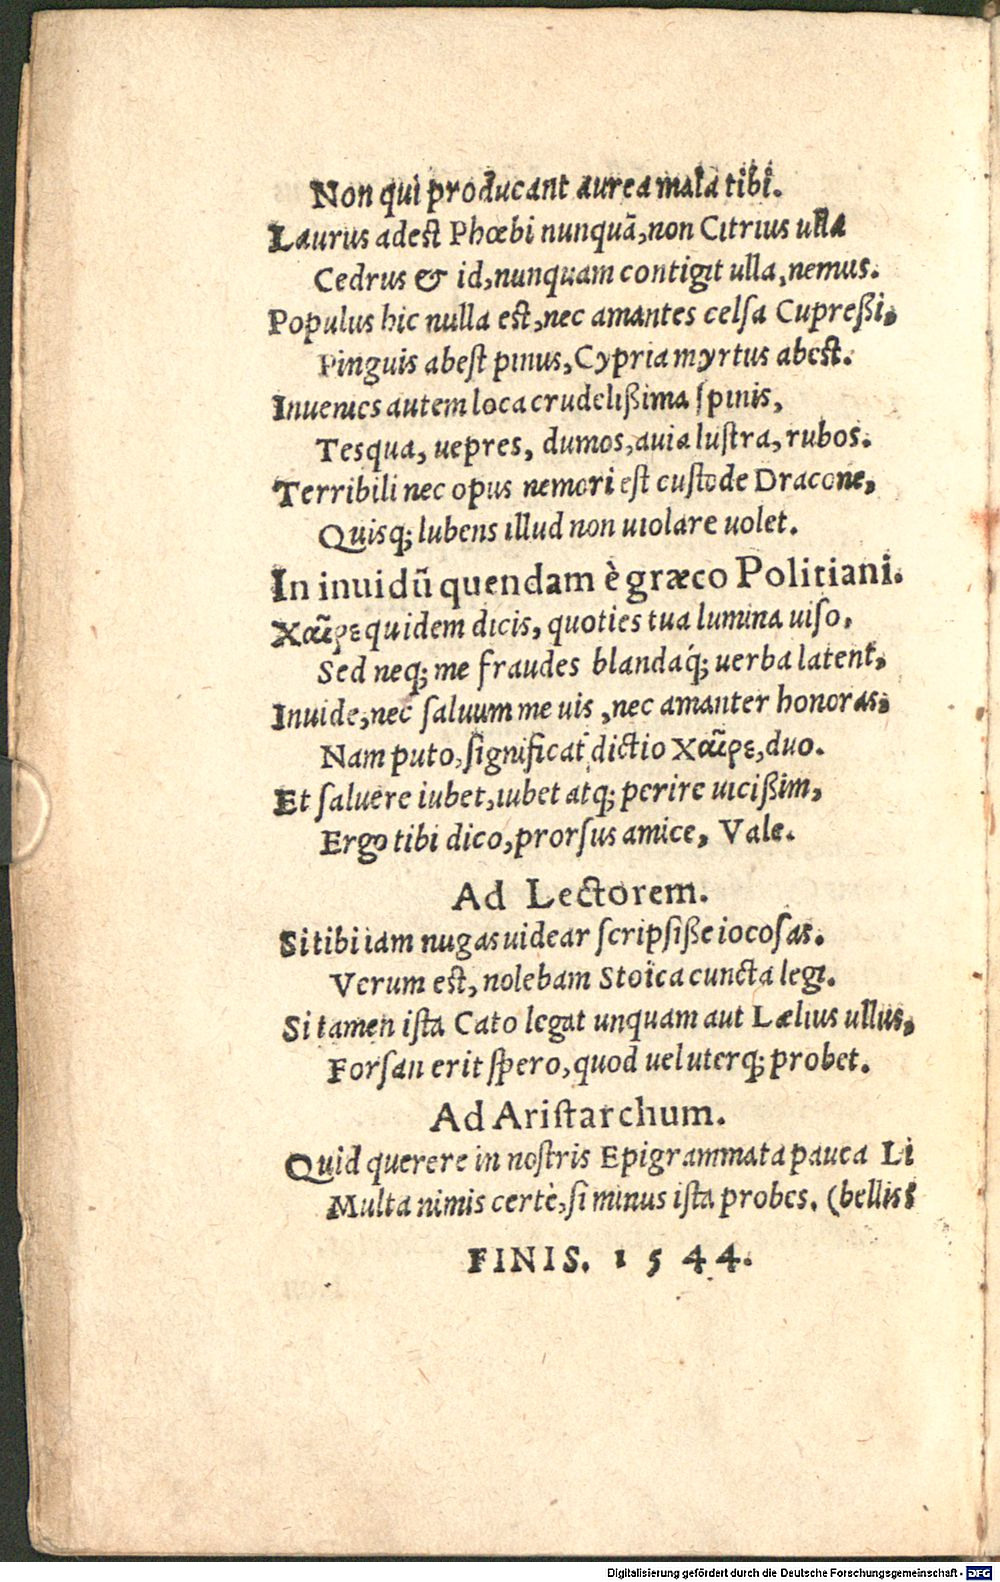 Non qui producant aurea mala tibi.
Laurus adest Phœbi nunquã, non Citrius ulla
Cedrus & id, nunquam contigit ulla, nemus.
Populus hic nulla est, nec amantes celsa Cupreßi,
Pinguis abest pinus, Cypria myrtus abest.
Inuenies autem loca crudelißima spinis,
Tesqua, uepres, dumos, auia lustra, rubos.
Terribili nec opus nemori est custode Dracone,
Quisq; lubens illud non uiolare uolet.
In inuidũ quendam è græco Politiani.
Χαῖρε quidem dicis, quoties tua lumina uiso,
Sed neq; me fraudes blandaq́; uerba latent,
Inuide, nec saluum me uis, nec amanter honoras,
Nam puto, significat dictio χαῖρε, duo.
Et saluere iubet, iubet atq; perire uicißim,
Ergo tibi dico, prorsus amice, Vale.
Ad Lectorem.
Si tibi iam nugas uidear scripsiße iocosas.
Verum est, nolebam Stoica cuncta legi.
Si tamen ista Cato legat unquam aut Lælius ullus,
Forsan erit spero, quod uel uterq; probet.
Ad Aristarchum.
Quid querere in nostris Epigrammata pauca Li
Multa nimis certè, si minus ista probes. (bellis?
FINIS. 1544.
Digitalisierung gefördert durch die Deutsche Forschungsgemeinschaft - DFG